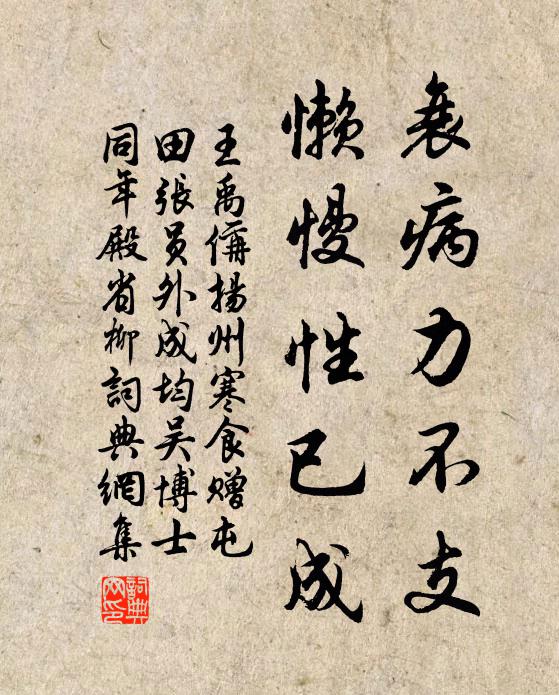 衰病力不支
懒慢性已成
王禹偁揚州寒食赠屯
田張員外成均吴博士
同年殿省柳詞典網集
詞典网印